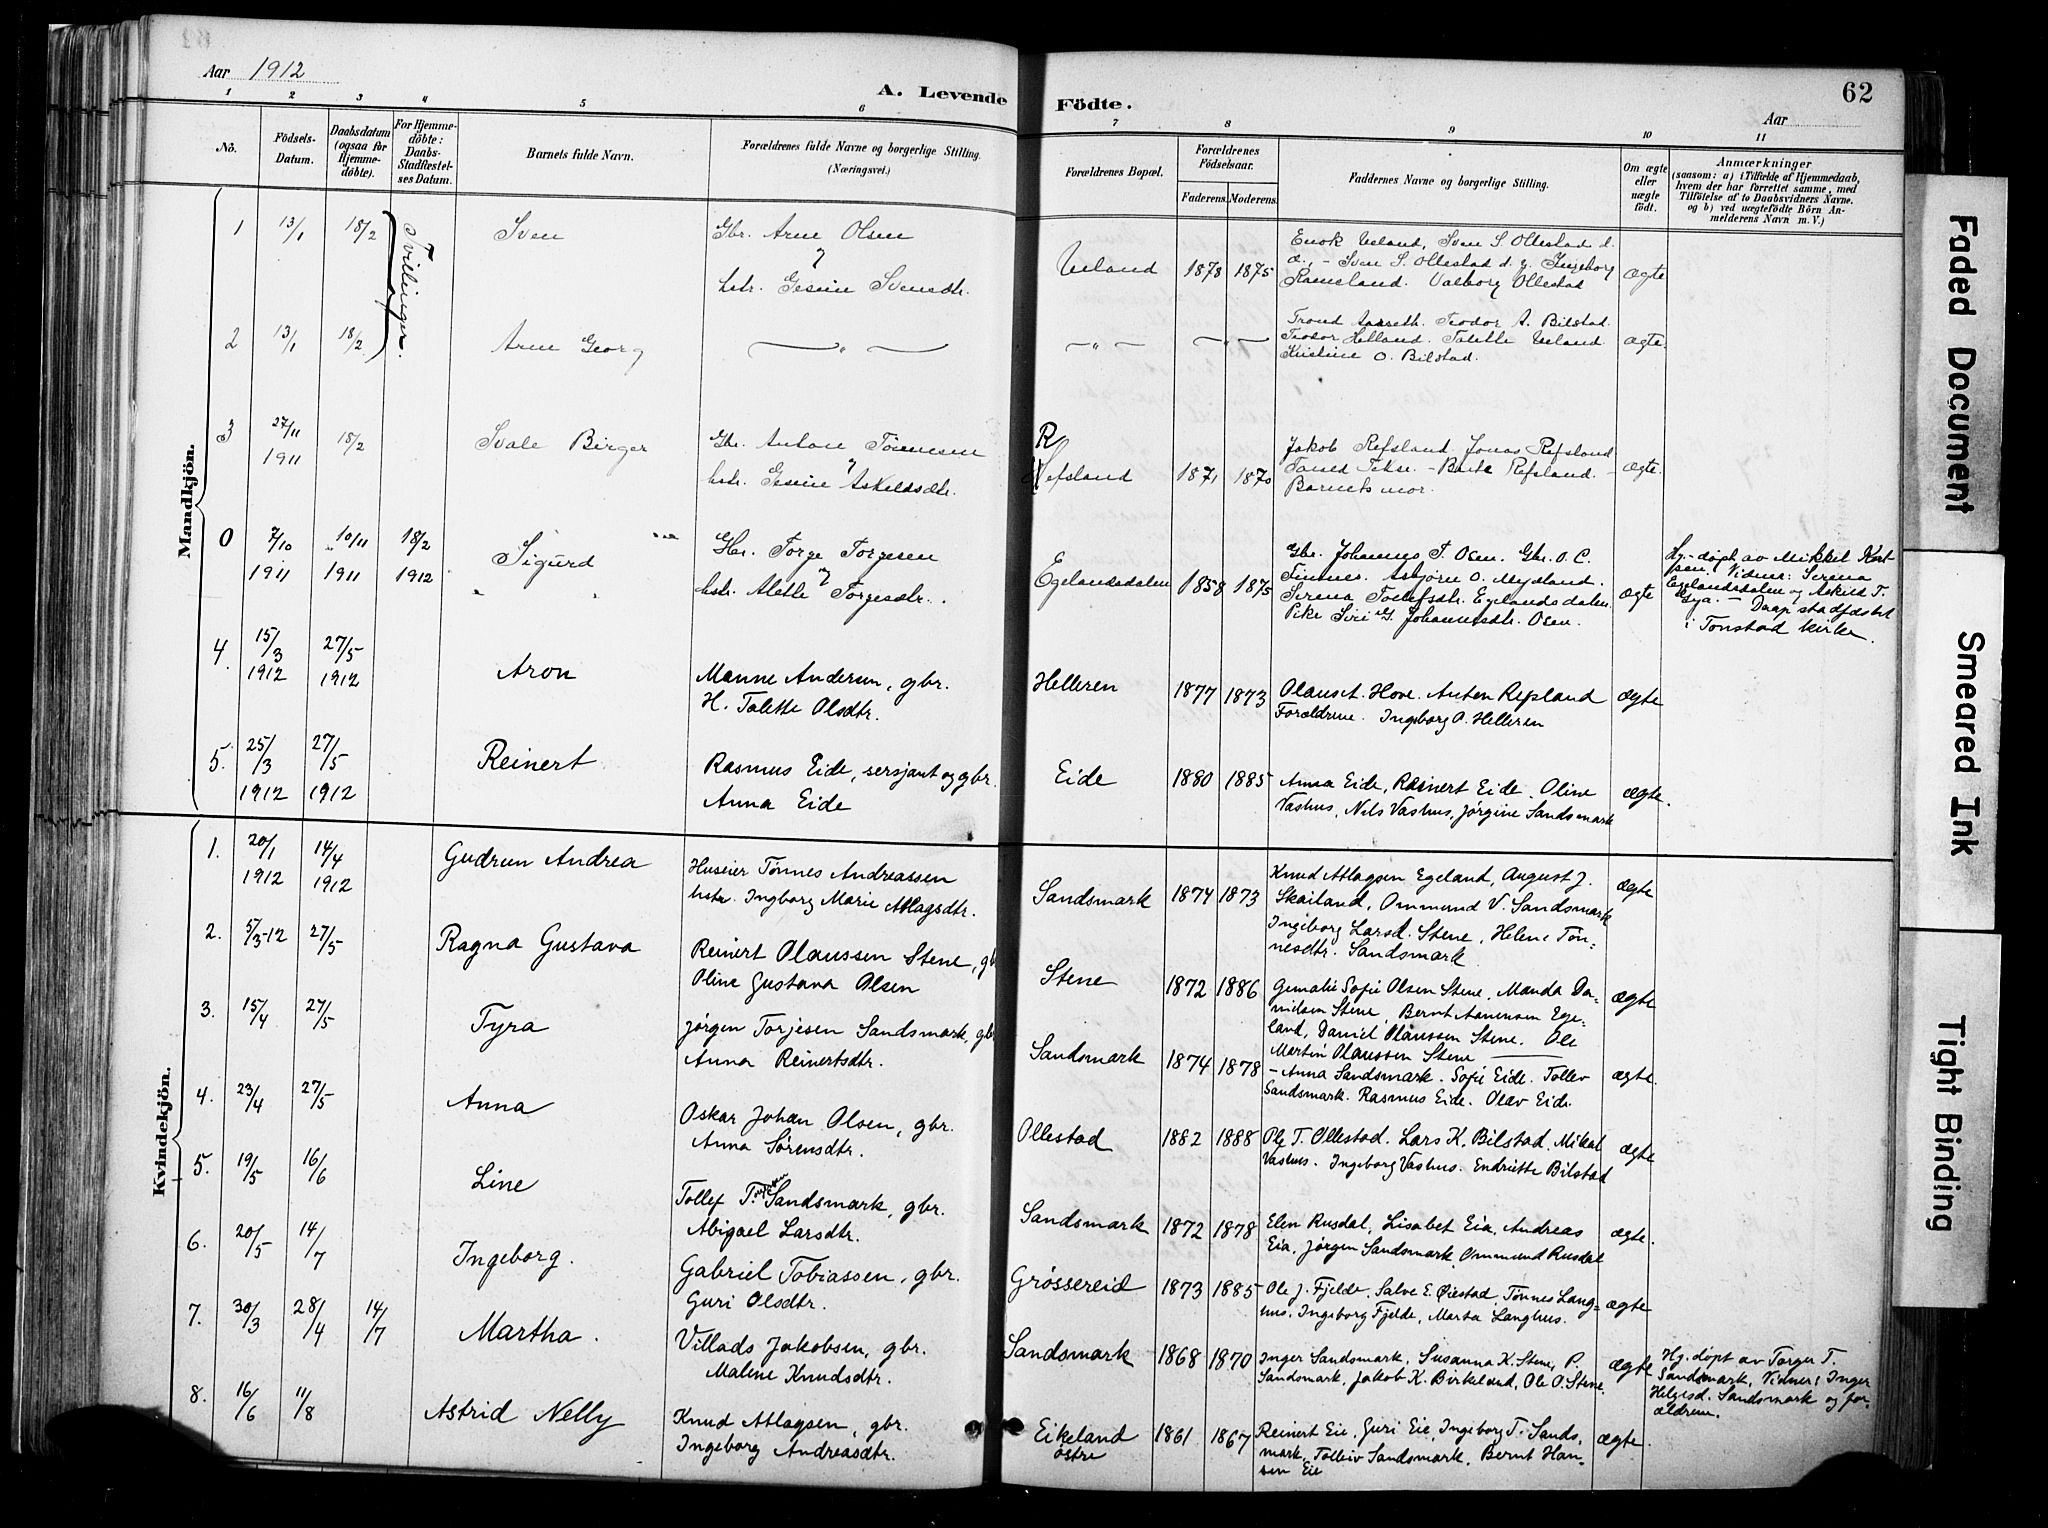 Aar 1912
A. Levende Födte.
62
Aar
1 2 3 4 5 6 7 8 9 10 11
Nö.
Födsels-Datum.
Daabsdatum (ogsaa for Hjemmedöbte).
For Hjemmedöbte: Daabs-Stadfæstelses Datum.
Barnets fulde Navn.
Forældrenes fulde Navne og borgerlige Stilling. (Næringsvei.)
Forældrenes Bopæl.
Forældrenes Födselsaar.
Faderens. Moderens.
Faddernes Navne og borgerlige Stilling.
Om ægte eller uægte født.
Anmærkninger
(saasom: a) i Tilfælde af Hjemmedaab, hvem der har forrettet samme, med Tilföielse af to Daabsvidners Navne. og b) ved uægtefödte Börn Anmelderens Navn m. V.)
Mandkjön.
1 13/1 18/2 Tvillinger. Sven
Gbr. Arne Olsen
hstr. Gesine Svensdtr.
Ueland 1878 1875
Enok Ueland, Sven S. Ollestad d.
æ., - Sven S. Ollestad d. y. Ingeborg
Ramsland. Valborg Ollestad
ægte
2 13/1 18/2 Arne Georg
— " — — " — — " —
Trond Aamreth. Teodor A. Bilstad.
Teodor Helland. Talette Ueland
Kristine O. Bilstad.
ægte.
3 27/11 1911 18/2 Svale Birger
Gbr. Anton Tönnesen
hstr. Gesine Askildsdtr.
R
Refsland 1871 1870
Jakob Refsland Jonas Refsland
Berte Refsland. -
Barnets mor.
ægte.
0 7/10 1911 10/11 1911 18/2 1912 Sigurd
Gbr. Torge Torgesen
hstr. Alette Torgesdtr.
Egelandsdalen 1858 1875
Gbr. Johannes T. Osen. Gbr. O. C.
Fintnes. Asbjörn O. Mydland.
Serena Tollefsdtr. Egelandsdalen
Pike Siri G. Johannesdtr. Osen.
ægte
Hj.-døpt av Mikkel
Vidner: Serena
Egelandsdalen og Askild T.
Eya. - Daap stadfæstet
i Tonstad kirke.
4. 15/3 1912 27/5 1912 Aron
Manne Andersen, gbr.
H. Talette Olsdtr.
Helleren 1877 1873
Olaus A. Hove. Anten Refsland
Forældrene. Ingeborg O. Helleren
ægte
5. 25/3 1912 27/5 1912 Reinert
Rasmus Eide, sersjant og gbr.
Anna Eide
Eide 1880 1885
Anna Eide, Reinert Eide. Oline
Vashus, Nils Vashus, Jørgine Sandsmark
ægte.
Kvindekjön.
1. 20/1 1912 14/4 1912 Gudrun Andrea
Huseier Tønnes Andreassen
hstr. Ingborg Marie Atlagsdtr.
Sandsmark 1874 1873
Knud Atlagsen Egeland, August J.
Skailand, Ommund V. Sandsmark
Ingeborg Larsd. Stene, Helene Tøn-
nesdtr. Sandsmark
ægte
2. 5/3-12 27/5 Ragna Gustava
Reinert Olaussen Stene, gb
Oline Gustava Olsen
Stene 1872 1886
Gemalie Sofie Olsen Stene, Manda Da-
nielsen Stene, Bernt Aanensen Ege-
land, Daniel Olaussen Stene. Ole
Martin Olaussen Stene
ægte
3. 15/4 27/5 Tyra
Jørgen Torjesen Sandsmark, gb
Anna Reinertsdtr.
Sandsmark 1874 1878
- Anna Sandsmark. Sofie Eide. Tollev
Sandsmark. Rasmus Eide. Olav Eide.
ægte.
4. 23/4 27/5 Anna
Oskar Johan Olsen, gbr.
Anna Sørensdtr.
Ollestad 1882 1888
Ole T. Ollestad. Lars K. Bilstad. Mikal
Vashus. Ingeborg Vashus. Endriette Bilstad
ægte
5. 19/5 16/6 Line
Tollef T. Sandsmark, gbr.
Abigael Larsdtr.
Sandsmark 1872 1878
Elen Rusdal, Lisabet Eia, Andreas
Eia, Jørgen Sandsmark, Ommund Rusdal
ægte.
6. 20/5 14/7 Ingeborg.
Gabriel Tobiassen, gbr.
Guri Olsdtr.
Grössereid 1873 1885
Ole J. Fjelde. Salve E. Øiestad, Tønnes Lang-
hus. Ingeborg Fjelde, Marta Langhus.
ægte
7. 30/3 28/4 14/7 Martha.
Villads Jakobsen, gbr.
Malene Knudsdtr.
Sandsmark 1868 1870
Inger Sandsmark, Susanna K. Stene, P.
Sandsmark, Jakob K. Birkeland, Ole O. Stene.
ægte
Hj. døpt av Torger T.
Sandsmark, Vidner: Inger
Helgesd. Sandsmark og for-
ældrene.
8. 16/6 11/8 Astrid Nelly
Knud Atlagsen, gbr.
Ingeborg Andreasdtr.
Eikeland östre 1861 1867
Reinert Eie, Guri Eie, Ingeborg T. Sands-
mark, Tolleiv Sandsmark, Bernt Han-
sen Eie
ægte.
Faded Document
Smeared Ink
Tight Binding